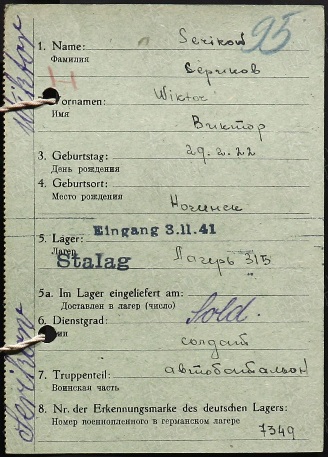 95
Wiktor
H
1. Name: Serikow
Фамилия
Сериков
Vornamen: Wiktor
Имя
Виктор
3. Geburtstag: 29.2.22
День рождения
4. Geburtsort:
Место рождения
Ночинск
Eingang 3.11.41
5. Lager: Лагерь 315
Лагер
Stalag
5a. Im Lager eingeliefert am:
Доставлен в лагер (число)
Sold.
6. Dienstgrad:
солдат
7. Truppenteil: автобатальон
Воинская часть
8. Nr. der Erkennungsmarke des deutschen Lagers:
Номер военнопленного в германском лагере
7349
Serikow